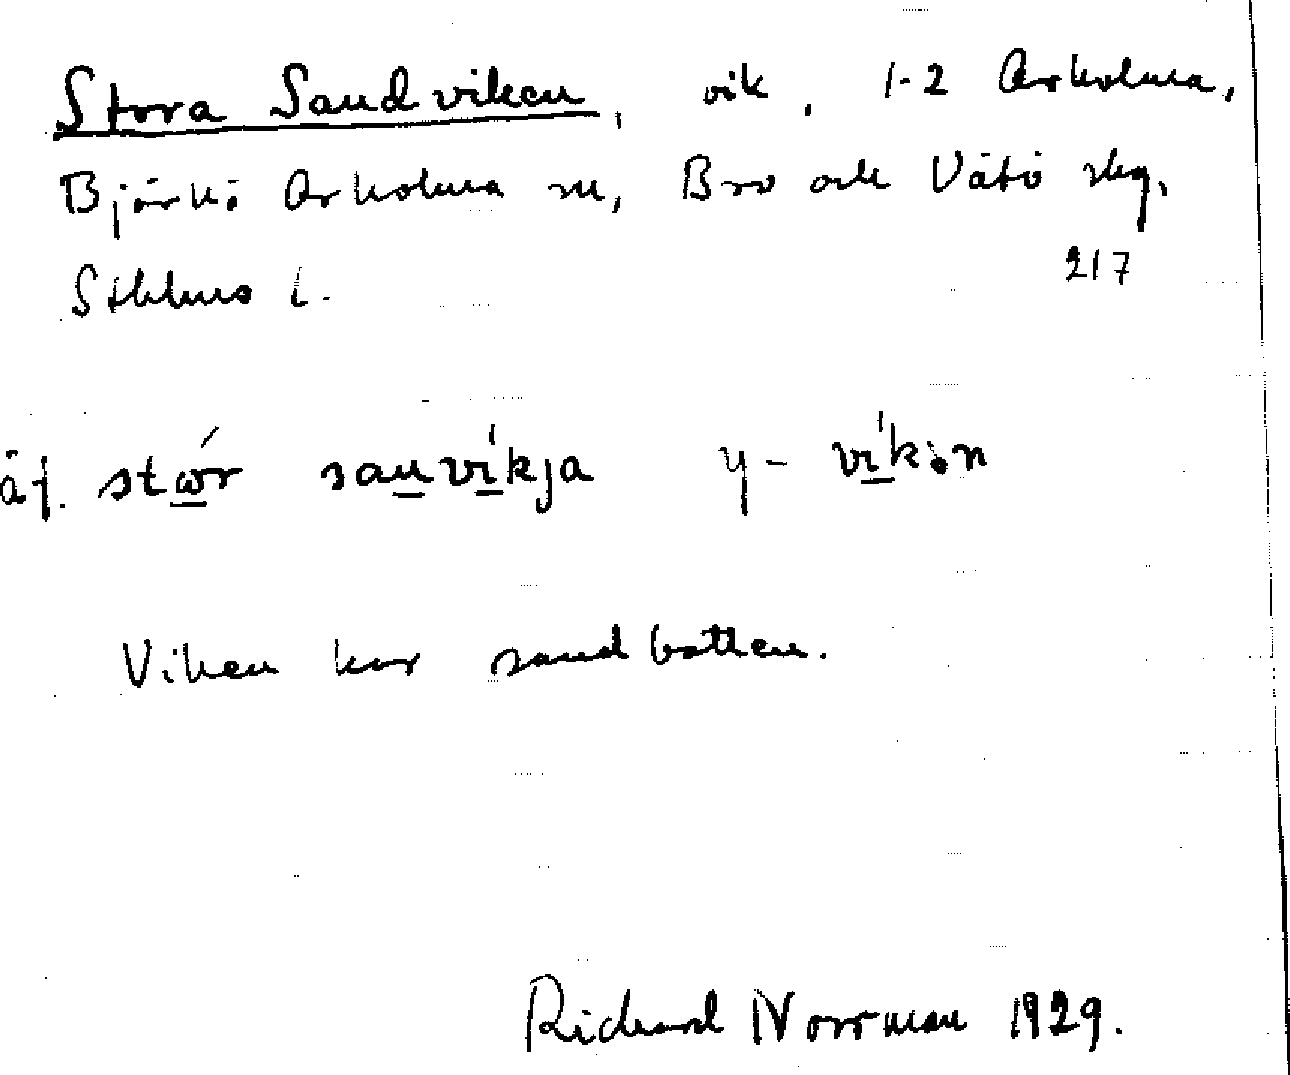 Stora Sandviken, vik, 1-2 Arholma,
Björkö Arholma sn, Bro och Vätö skg,
Sthlms l. 217
äf. stωr sauvikja y- vikɷn
Viken har sandbotten.
Richard Norrman 1929.